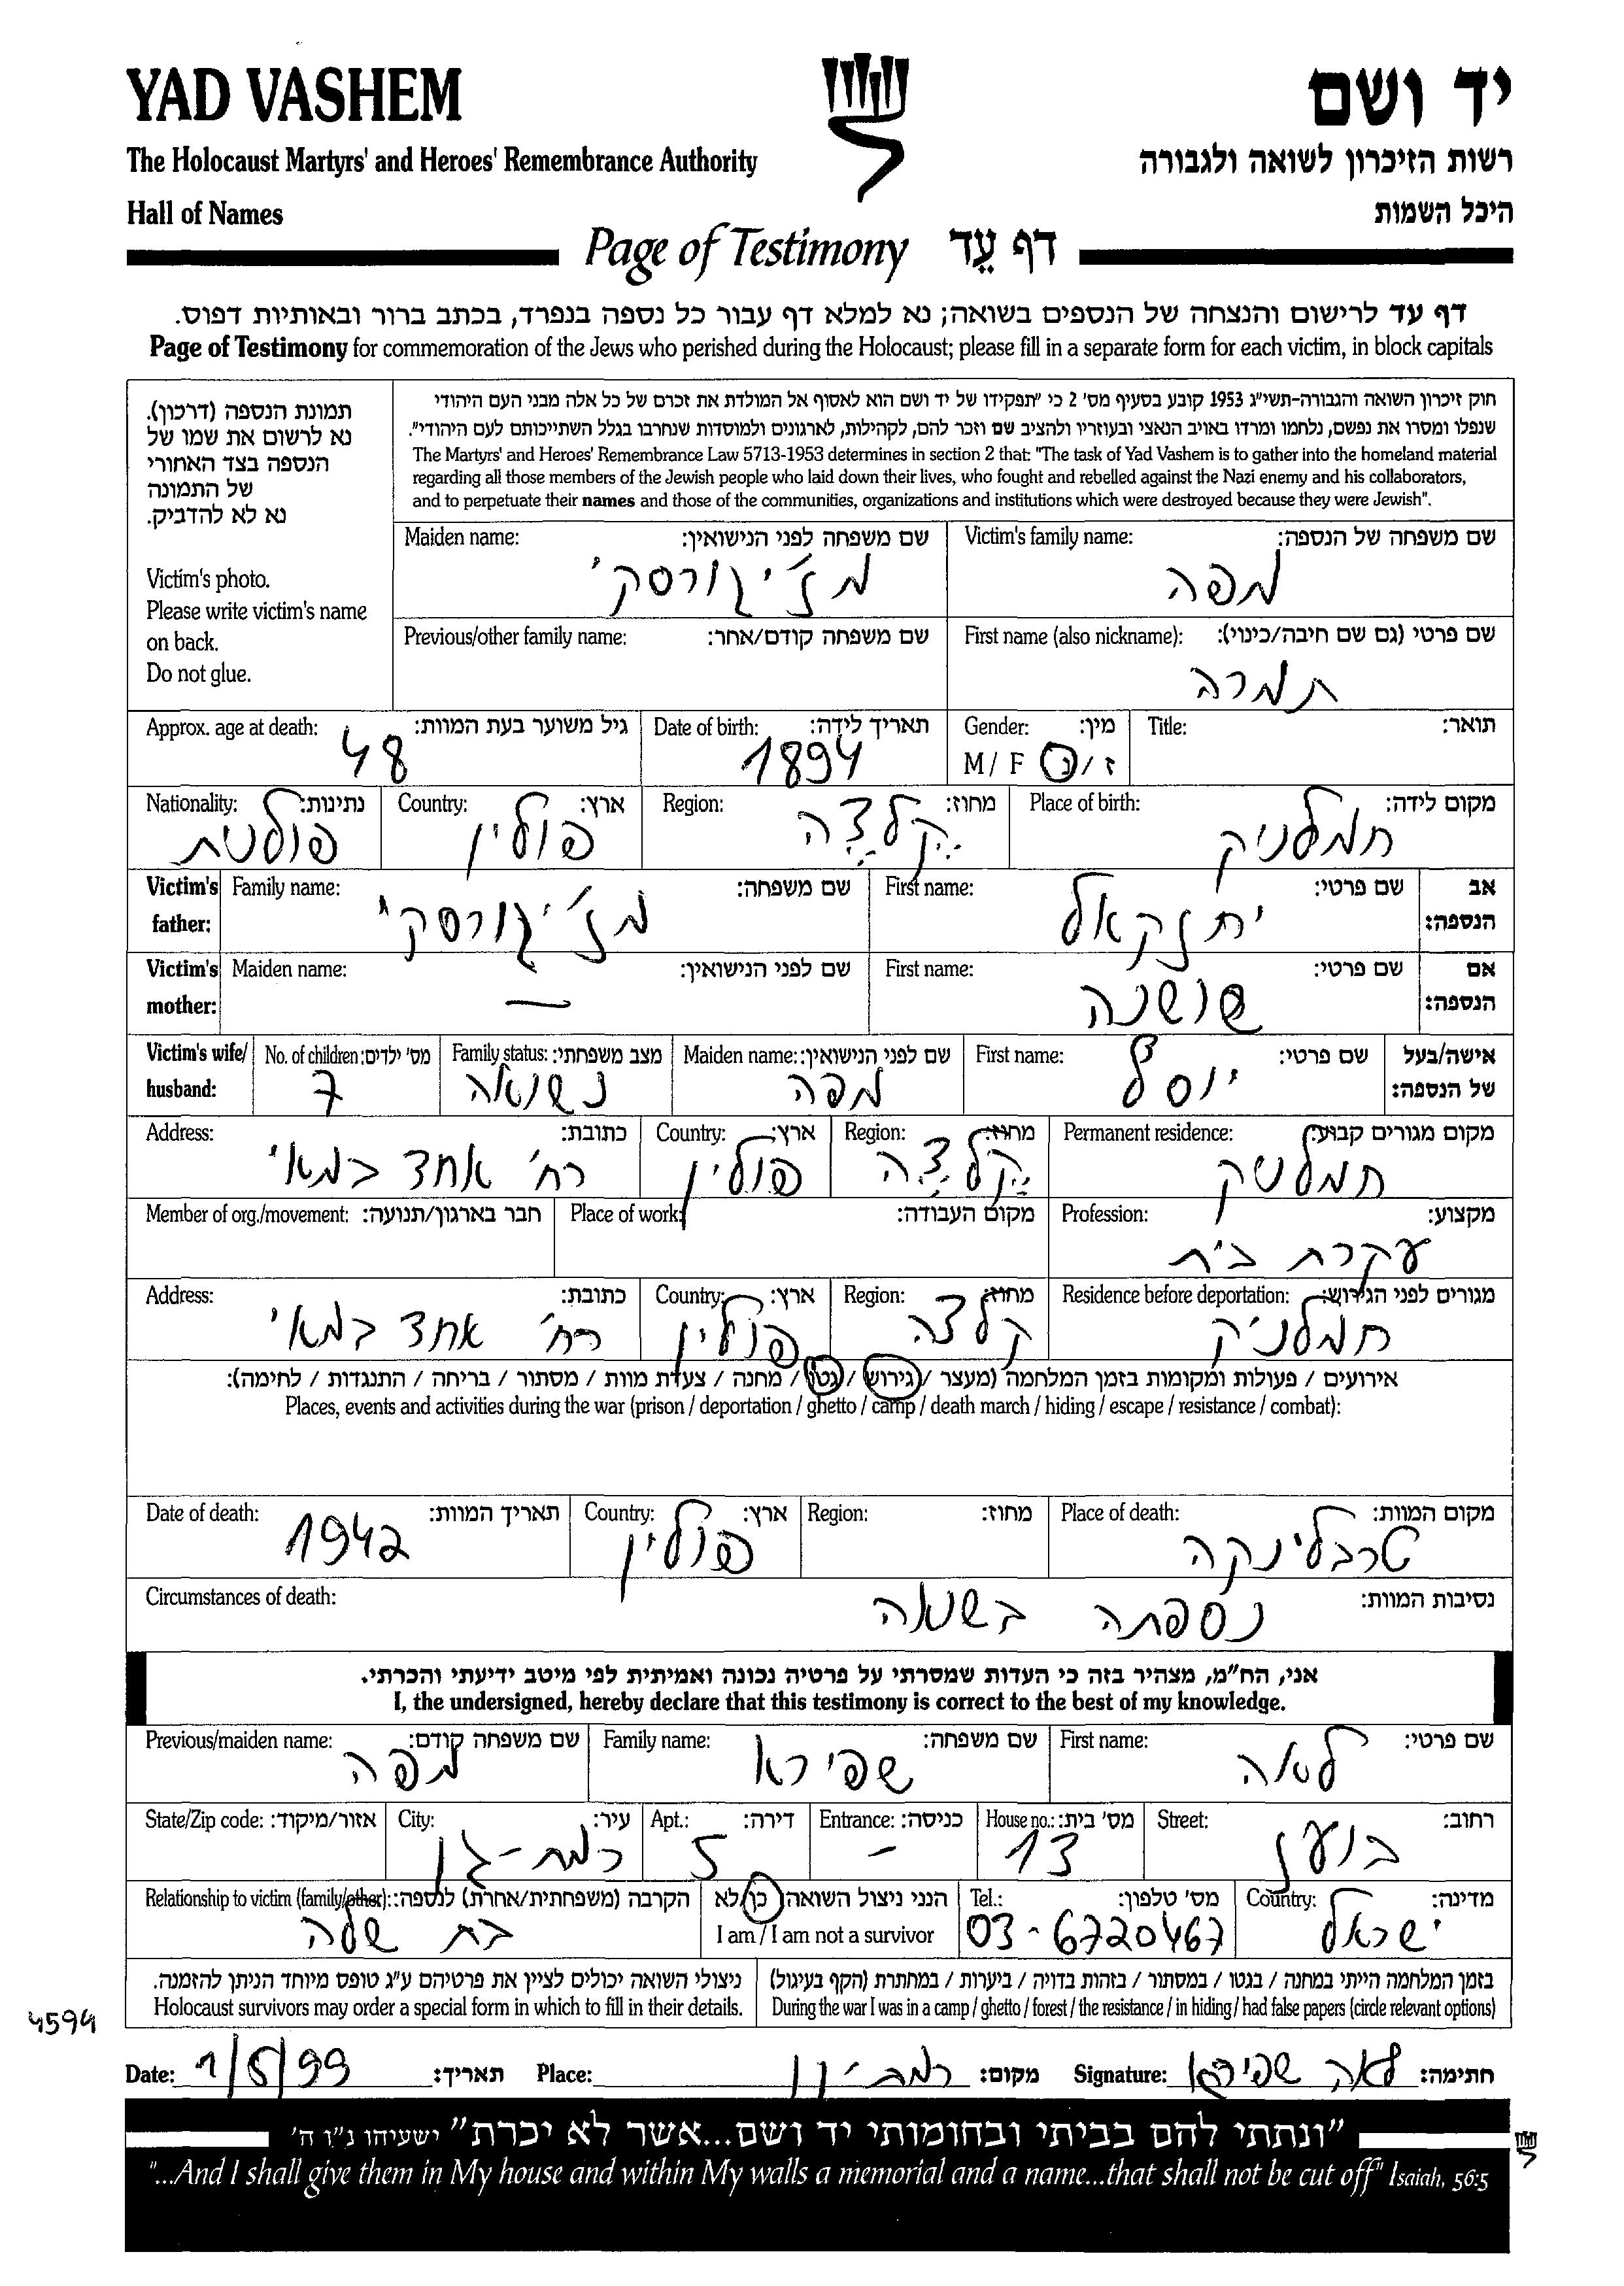 YAD VASHEM
יד ושם
The Holocaust Martyrs' and Heroes' Remembrance Authority
רשות הזיכרון לשואה ולגבורה
Hall of Names
היכל השמות
Page of Testimony דף עֵד
דף עד לרישום והנצחה של הנספים בשואה; נא למלא דף עבור כל נספה בנפרד, בכתב ברור ובאותיות דפוס.
Page of Testimony for commemoration of the Jews who perished during the Holocaust; please fill in a separate form for each victim, in block capitals
תמונת הנספה (דרכון).
נא לרשום את שמו של
הנספה בצד האחורי
של התמונה
נא לא להדביק.
Victim's photo.
Please write victim's name
on back.
Do not glue.
חוק זיכרון השואה והגבורה-תשי"ג 1953 קובע בסעיף מס' 2 כי "תפקידו של יד ושם הוא לאסוף אל המולדת את זכרם של כל אלה מבני העם היהודי
שנפלו ומסרו את נפשם, נלחמו ומרדו באויב הנאצי ובעוזריו ולהציב שם וזכר להם, לקהילות, לארגונים ולמוסדות שנחרבו בגלל השתייכותם לעם היהודי".
The Martyrs' and Heroes' Remembrance Law 5713-1953 determines in section 2 that: "The task of Yad Vashem is to gather into the homeland material
regarding all those members of the Jewish people who laid down their lives, who fought and rebelled against the Nazi enemy and his collaborators,
and to perpetuate their names and those of the communities, organizations and institutions which were destroyed because they were Jewish".
Victim's family name: שם משפחה של הנספה: Maiden name: שם משפחה לפני הנישואין:
מפה מז'יגורסקי
First name (also nickname): שם פרטי (גם שם חיבה/כינוי): Previous/other family name: שם משפחה קודם/אחר:
תמרה
Title: תואר: Gender: מין: Date of birth: תאריך לידה: Approx. age at death: גיל משוער בעת המוות:
M / F ז / נ 1894 48
Place of birth: מקום לידה: Region: מחוז: Country: ארץ: Nationality: נתינות:
חמלניק קלצה פולין פולנית
אב הנספה: Victim's father: First name: שם פרטי: Family name: שם משפחה:
יחזקאל מז'יגורסקי
אם הנספה: Victim's mother: First name: שם פרטי: Maiden name: שם לפני הנישואין:
שושנה —
אישה/בעל של הנספה: Victim's wife/ husband: First name: שם פרטי: Maiden name: שם לפני הנישואין: Family status: מצב משפחתי: No. of children: מס' ילדים:
יוסל מפה נשואה 7
Permanent residence: מקום מגורים קבוע: Region: מחוז: Country: ארץ: Address: כתובת:
חמלניק קלצה פולין רח' אחד במאי
Profession: מקצוע: Place of work: מקום העבודה: Member of org./movement: חבר בארגון/תנועה:
עקרת בית
Residence before deportation: מגורים לפני הגירוש: Region: מחוז: Country: ארץ: Address: כתובת:
חמלניק קלצה פולין רח' אחד במאי
אירועים / פעולות ומקומות בזמן המלחמה (מעצר / גירוש / גטו / מחנה / צעדת מוות / מסתור / בריחה / התנגדות / לחימה):
Places, events and activities during the war (prison / deportation / ghetto / camp / death march / hiding / escape / resistance / combat):
Place of death: מקום המוות: Region: מחוז: Country: ארץ: Date of death: תאריך המוות:
טרבלינקה פולין 1942
Circumstances of death: נסיבות המוות:
נספתה בשואה
אני, הח"מ, מצהיר בזה כי העדות שמסרתי על פרטיה נכונה ואמיתית לפי מיטב ידיעתי והכרתי.
I, the undersigned, hereby declare that this testimony is correct to the best of my knowledge.
First name: שם פרטי: Family name: שם משפחה: Previous/maiden name: שם משפחה קודם:
לאה שפירא מפה
Street: רחוב: House no.: מס' בית: Entrance: כניסה: Apt.: דירה: City: עיר: State/Zip code: אזור/מיקוד:
בועז 13 – 5 רמת-גן
Country: מדינה: Tel.: מס' טלפון: הנני ניצול השואה: כן/לא Relationship to victim (family/other): הקרבה (משפחתית/אחרת) לנספה:
ישראל 03-6720467 I am / I am not a survivor בת שלה
בזמן המלחמה הייתי במחנה / בגטו / במסתור / בזהות בדויה / ביערות / במחתרת (הקף בעיגול)
During the war I was in a camp / ghetto / forest / the resistance / in hiding / had false papers (circle relevant options)
ניצולי השואה יכולים לציין את פרטיהם ע"ג טופס מיוחד הניתן להזמנה.
Holocaust survivors may order a special form in which to fill in their details.
4594
Date: 1/5/99 תאריך: Place: מקום: Signature: לאה שפירא חתימה:
"ונתתי להם בביתי ובחומותי יד ושם...אשר לא יכרת" ישעיהו נ"ו ה'
"...And I shall give them in My house and within My walls a memorial and a name...that shall not be cut off" Isaiah, 56:5